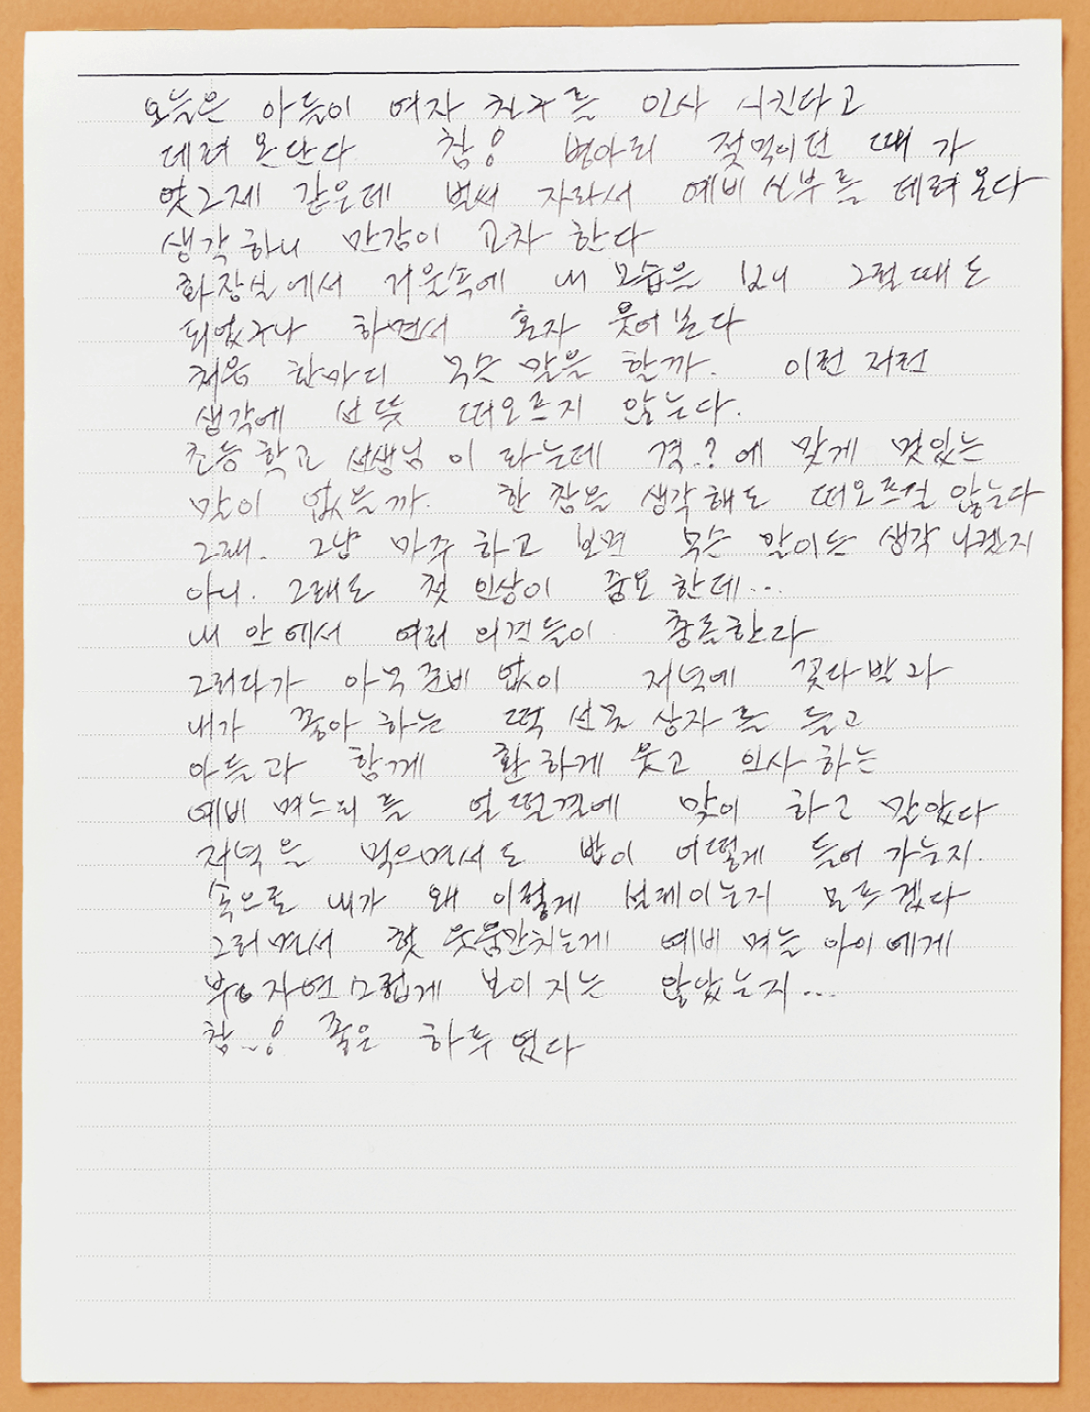 오늘은 아들이 여자 친구를 인사 시킨다고
데려 온단다 참! 병아리 젖먹이던 때가
엊그제 같은데 벌써 자라서 예비 신부를 데려 온다
생각하니 만감이 교차 한다
화장실에서 거울속에 내 모습을 보니 그럴때도
되었구나 하면서 혼자 웃어 본다
처음 한마디 무슨 말을 할까. 이런 저런
생각에 선뜻 떠오르지 않는다.
초등학교 선생님 이라는데 격.?에 맞게 멋있는
말이 없을까. 한참을 생각해도 떠오르질 않는다
그래. 그냥 마주하고 보면 무슨 말이든 생각 나겠지
아니. 그래도 첫 인상이 중요한데...
내 안에서 여러 의견들이 충돌한다
그러다가 아무 준비 없이 저녁에 꽃다발과
내가 좋아 하는 떡 선물 상자를 들고
아들과 함께 환하게 웃고 인사하는
예비 며느리를 얼떨결에 맞이 하고 말았다
저녁을 먹으면서도 밥이 어떻게 들어 가는지.
속으로 내가 왜 이렇게 설레이는지 모르겠다
그러면서 헛 웃음간치는게 예비 며늘 아이에게
부자연스럽게 보이지는 않았는지...
참~! 좋은 하루였다